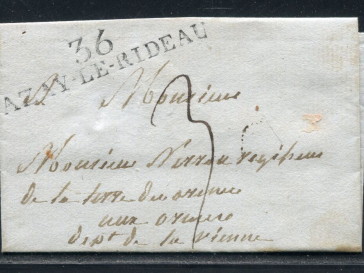 36
AZAY-LE-RIDEAU
A Monsieur
3
Monsieur regisseur
de la terre des ormes
aux ormes
dept de la vienne